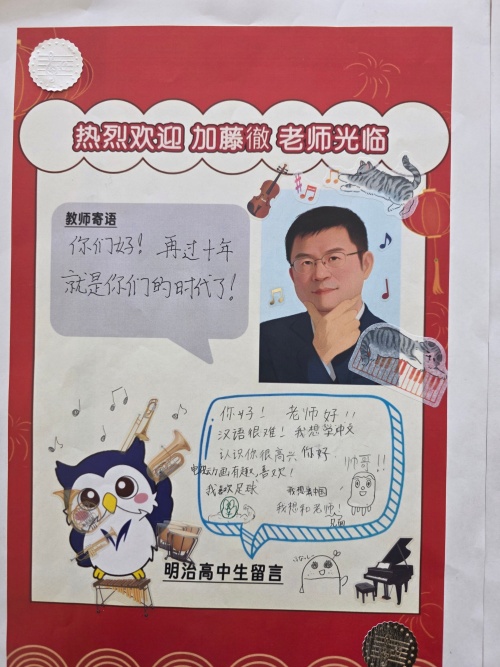 热烈欢迎 加藤徹 老师光临
教师寄语
你们好！再过十年
就是你们的时代了！
你好！ 老师好!!
汉语很难！我想学中文
认识你很高兴 你好
有趣 喜欢！
帅哥!!
我喜欢足球
我想去中国
我想和老师！
见面
明治高中生留言